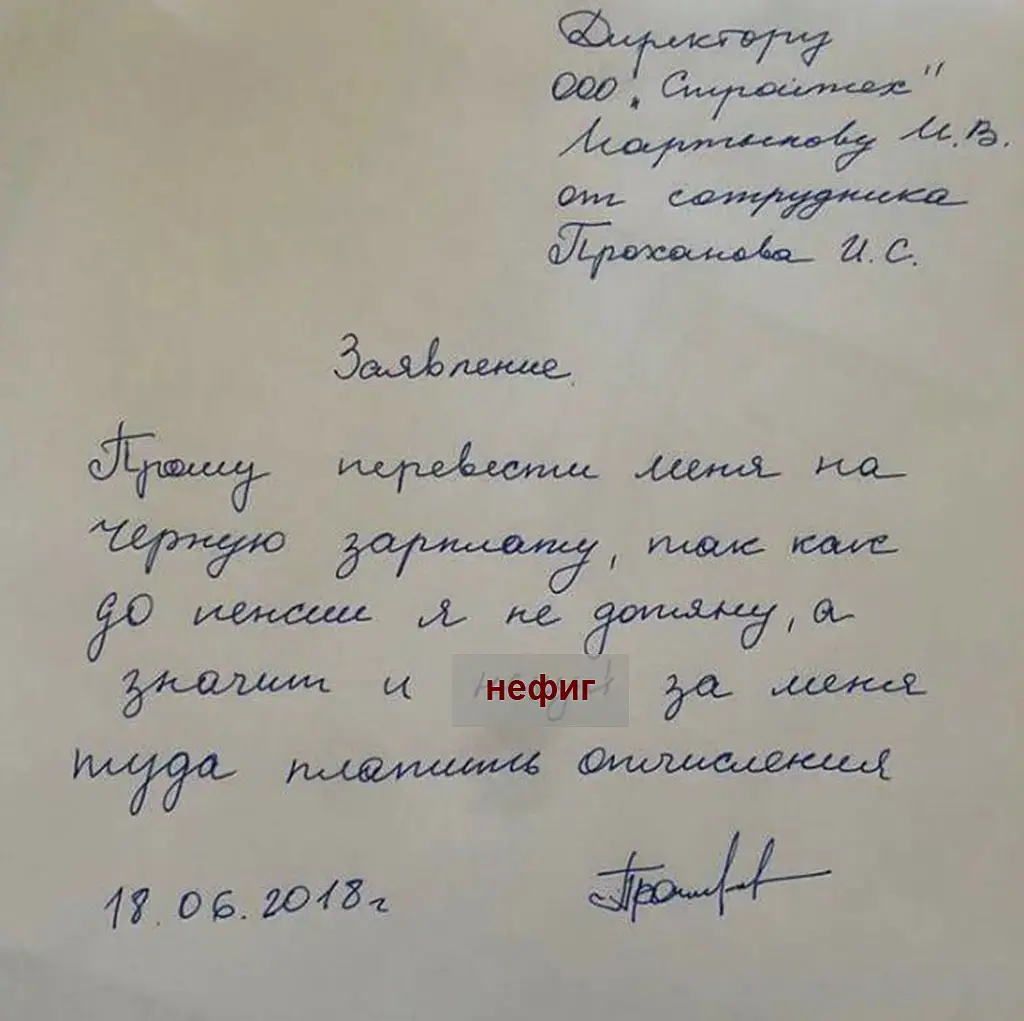 Директору
ООО "Строитех"
Мартынову И.В.
от сотрудника
Проханова И.С.
Заявление.
Прошу перевести меня на
черную зарплату, так как
до пенсии я не дотяну, а
значит и нефиг за меня
туда платить отчисления
18.06.2018г